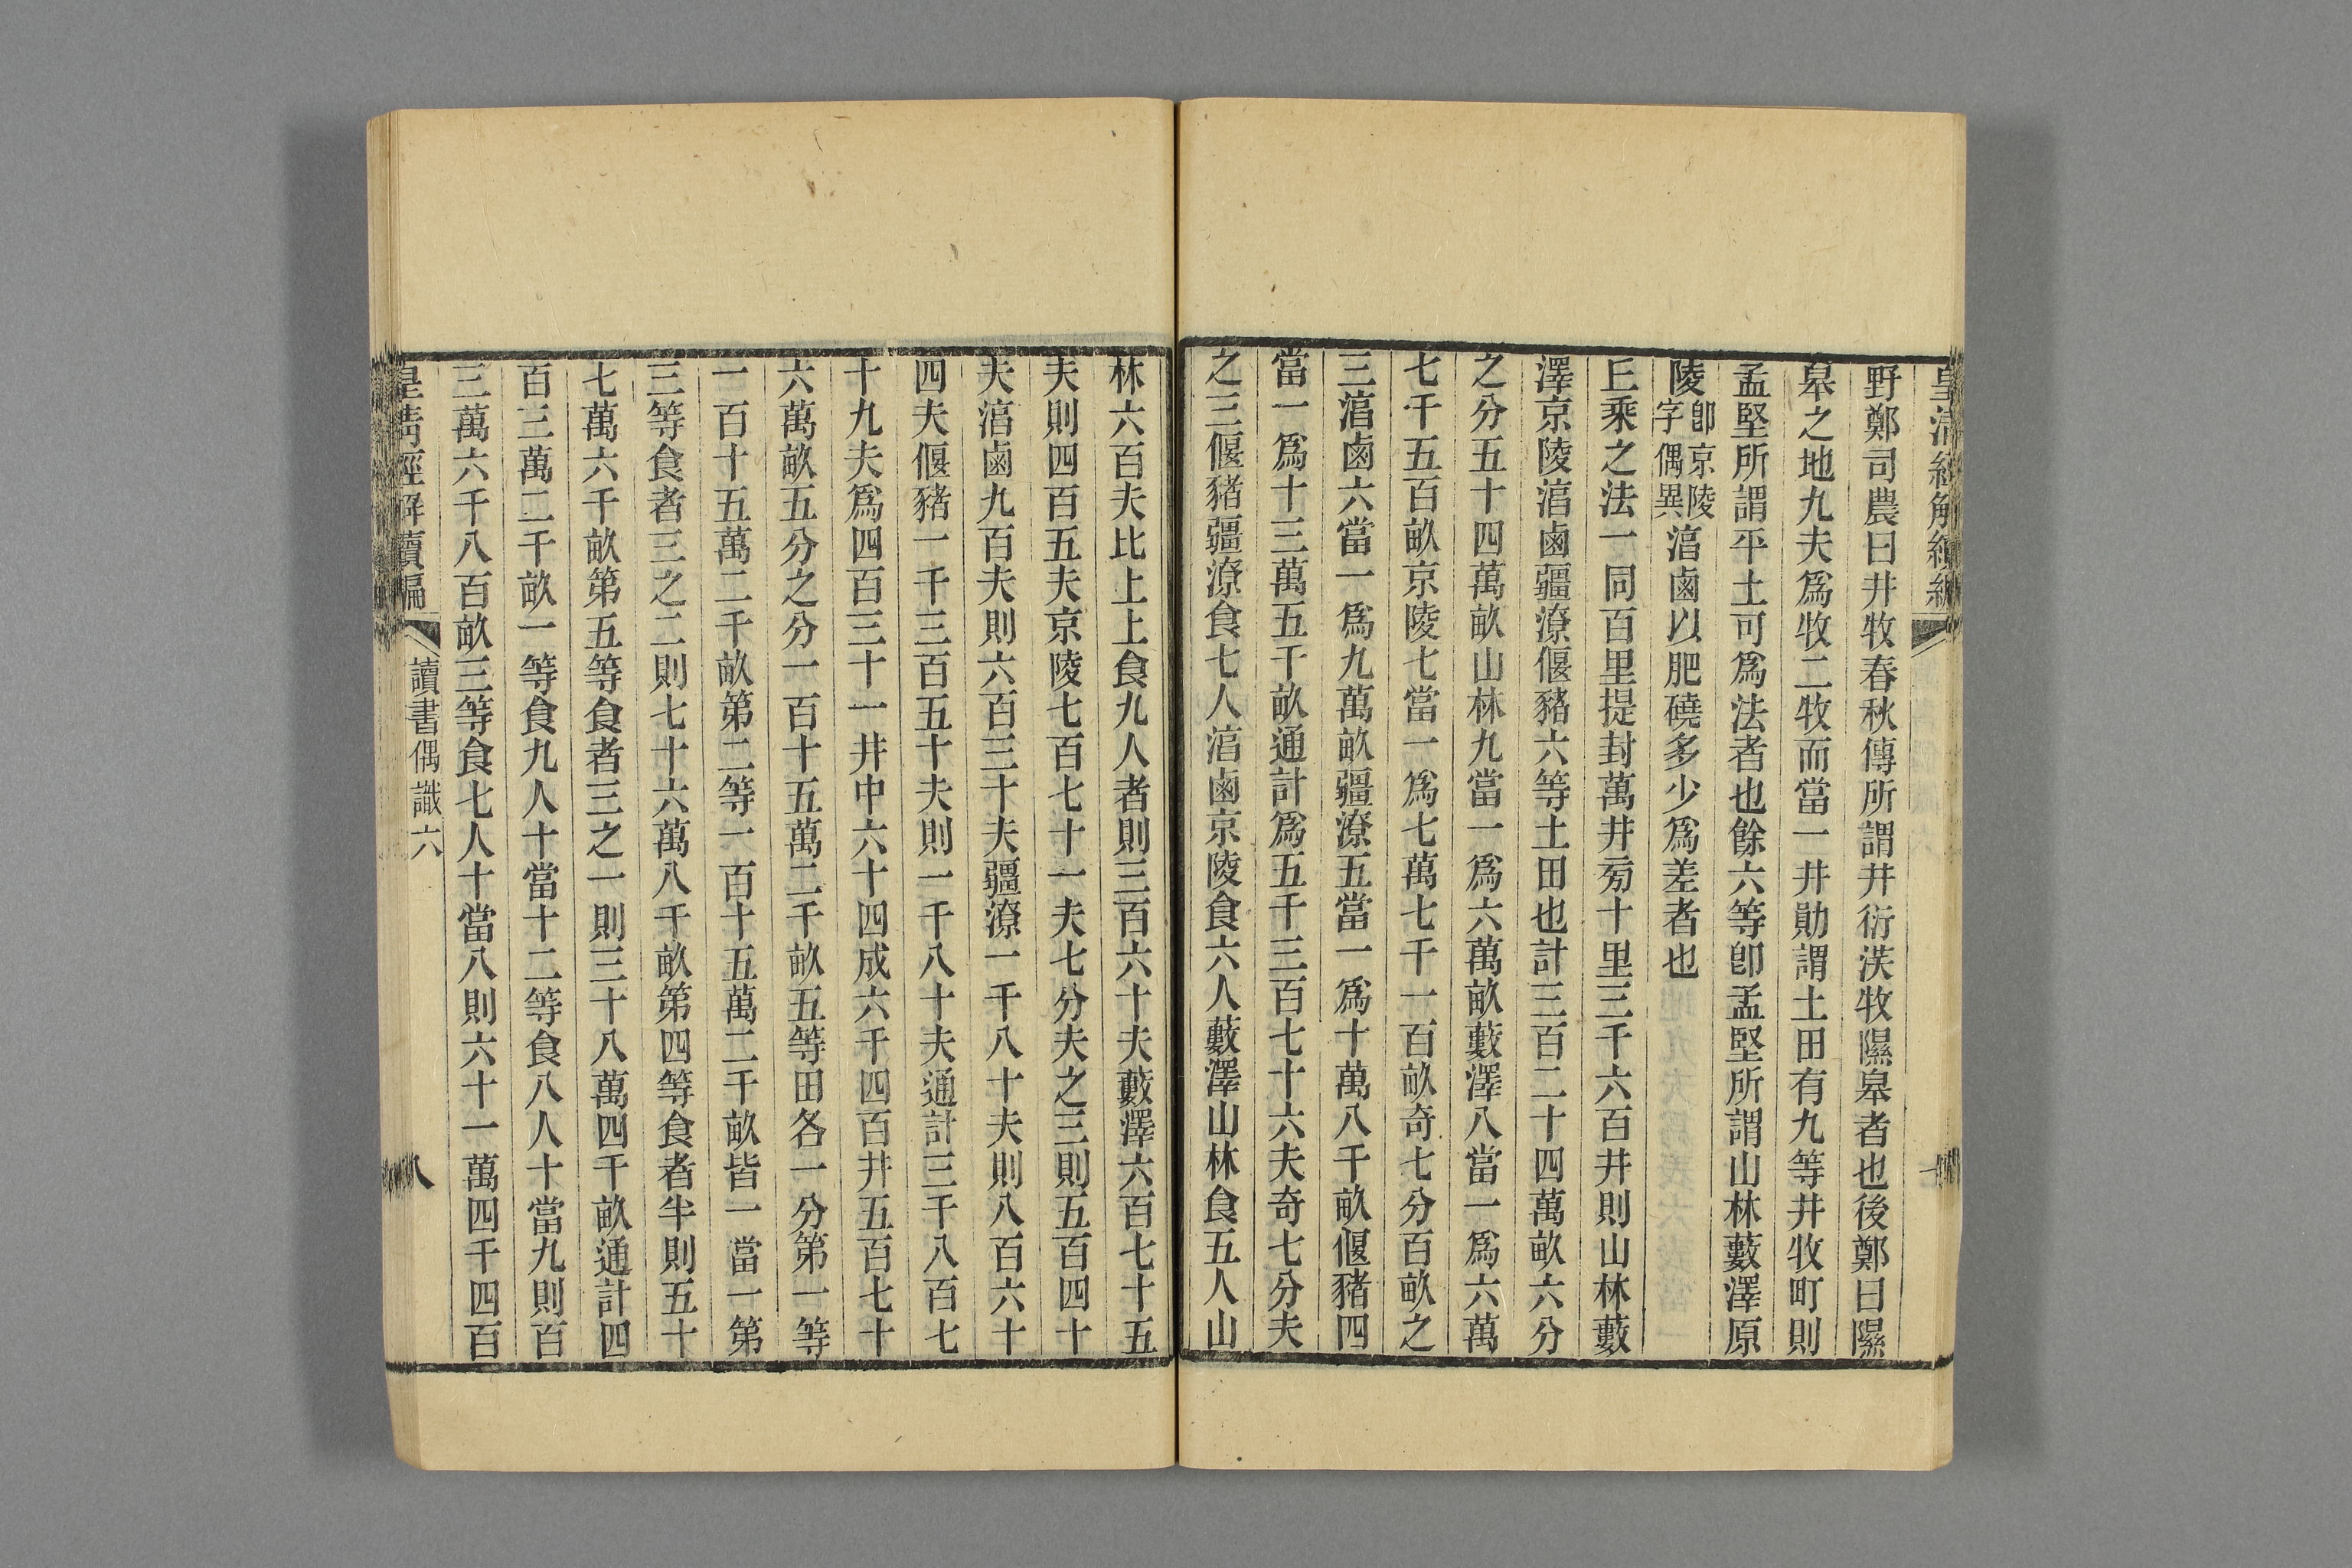 皇清經解續編
野鄭司農曰井牧春秋傳所謂井衍沃牧隰皋者也後鄭曰隰
皋之地九夫爲牧二牧而當一井勛謂土田有九等井牧町則
孟堅所謂平土可爲法者也餘六等卽孟堅所謂山林藪澤原
陵卽京陵字偶異淳鹵以肥磽多少爲差者也
丘乘之法一同百里提封萬井旁十里三千六百井則山林藪
澤京陵淳鹵疆潦偃豬六等土田也計三百二十四萬畝六分
之分五十四萬畝山林九當一爲六萬畝藪澤八當一爲六萬
七千五百畝京陵七當一爲七萬七千一百畝奇七分百畝之
三淳鹵六當一爲九萬畝疆潦五當一爲十萬八千畝偃豬四
當一爲十三萬五千畝通計爲五千三百七十六夫奇七分夫
之三偃豬疆潦食七人淳鹵京陵食六人藪澤山林食五人山
林六百夫比上上食九人者則三百六十夫藪澤六百七十五
夫則四百五夫京陵七百七十一夫七分夫之三則五百四十
夫淳鹵九百夫則六百三十夫疆潦一千八十夫則八百六十
四夫偃豬一千三百五十夫則一千八十夫通計三千八百七
十九夫爲四百三十一井中六十四成六千四百井五百七十
六萬畝五分之分一百十五萬二千畝五等田各一分第一等
一百十五萬二千畝第二等一百十五萬二千畝皆一當一第
三等食者三之二則七十六萬八千畝第四等食者半則五十
七萬六千畝第五等食者三之一則三十八萬四千畝通計四
百三萬二千畝一等食九人十當十二等食八人十當九則百
三萬六千八百畝三等食七人十當八則六十一萬四千四百
皇清經解續編
讀書偶識六
八